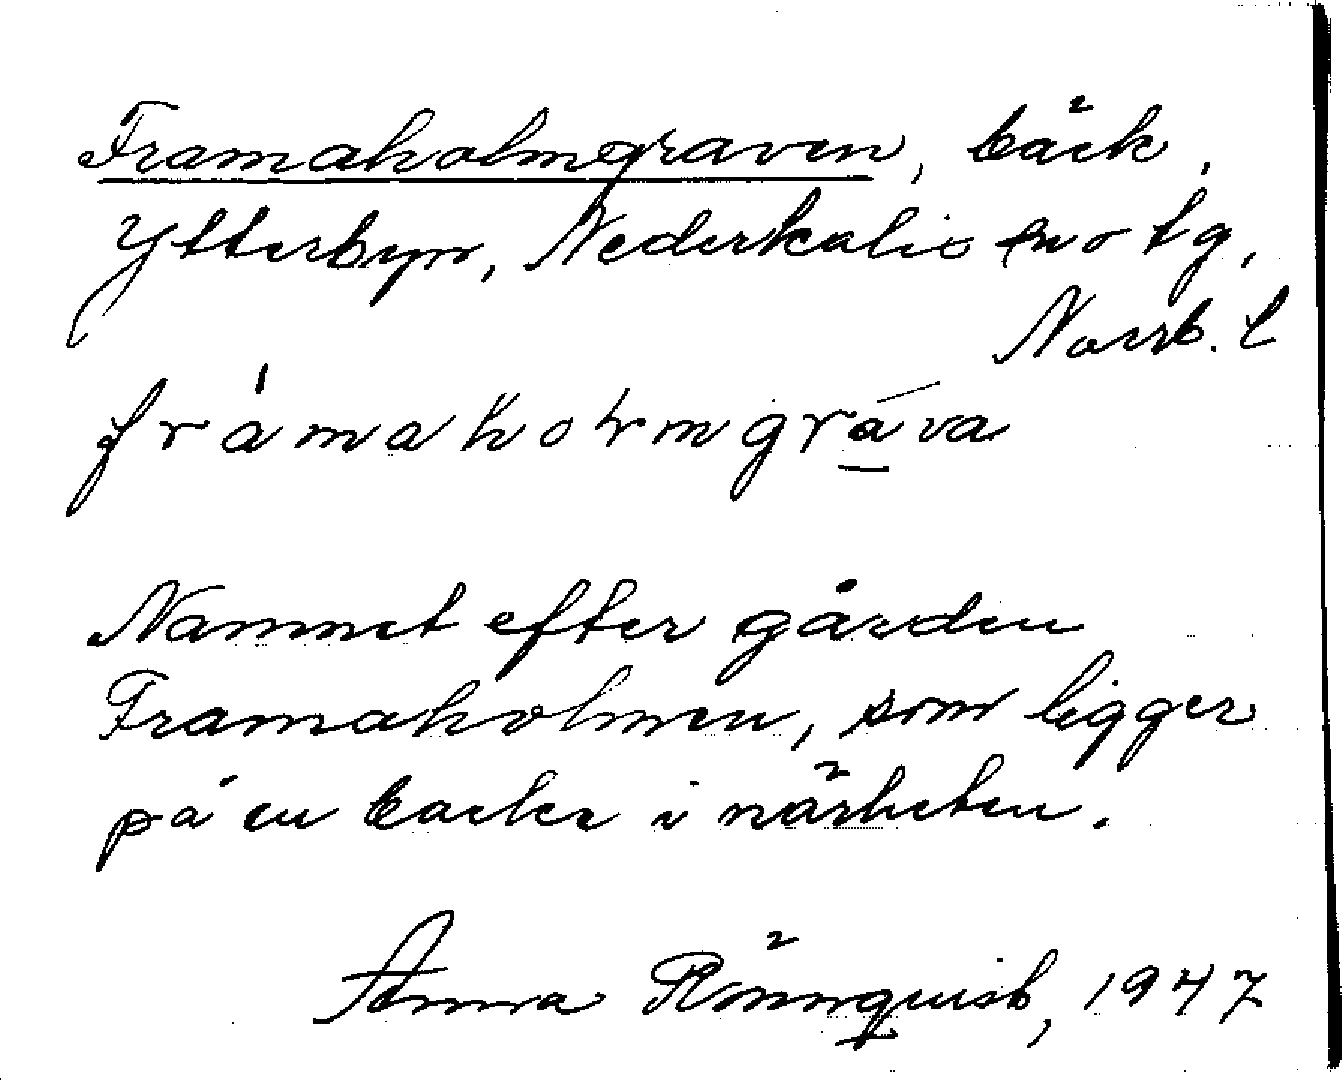 Framaholmgraven, bäck,
Ytterbyn, Nederkalix sn o tg,
Norrb. l
framaholmgrava
Namnet efter gården
Framaholmen, som ligger
på en backe i närheten.
Anna Rönnquist, 1947